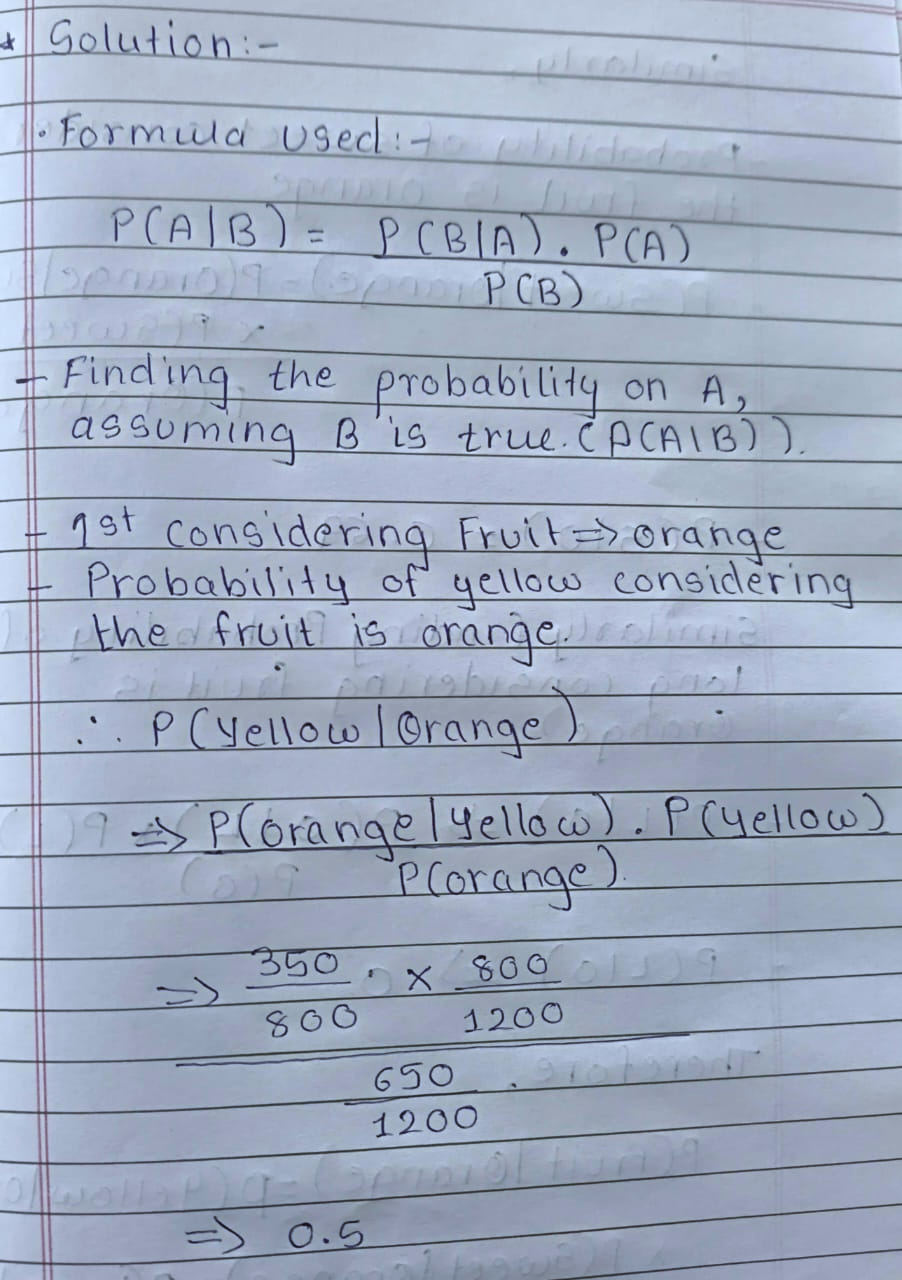 * Solution:-
• Formula used:-
P(A|B) = P(B|A) . P(A)
P(B)
- Finding the probability on A,
assuming B is true. (P(A|B)).
- 1st considering Fruit => orange
- Probability of yellow considering
the fruit is orange.
∴ P(Yellow | Orange)
=> P(orange | yellow) . P(yellow)
P(orange).
=> 350 . x 800
800 1200
650 .
1200
=> 0.5